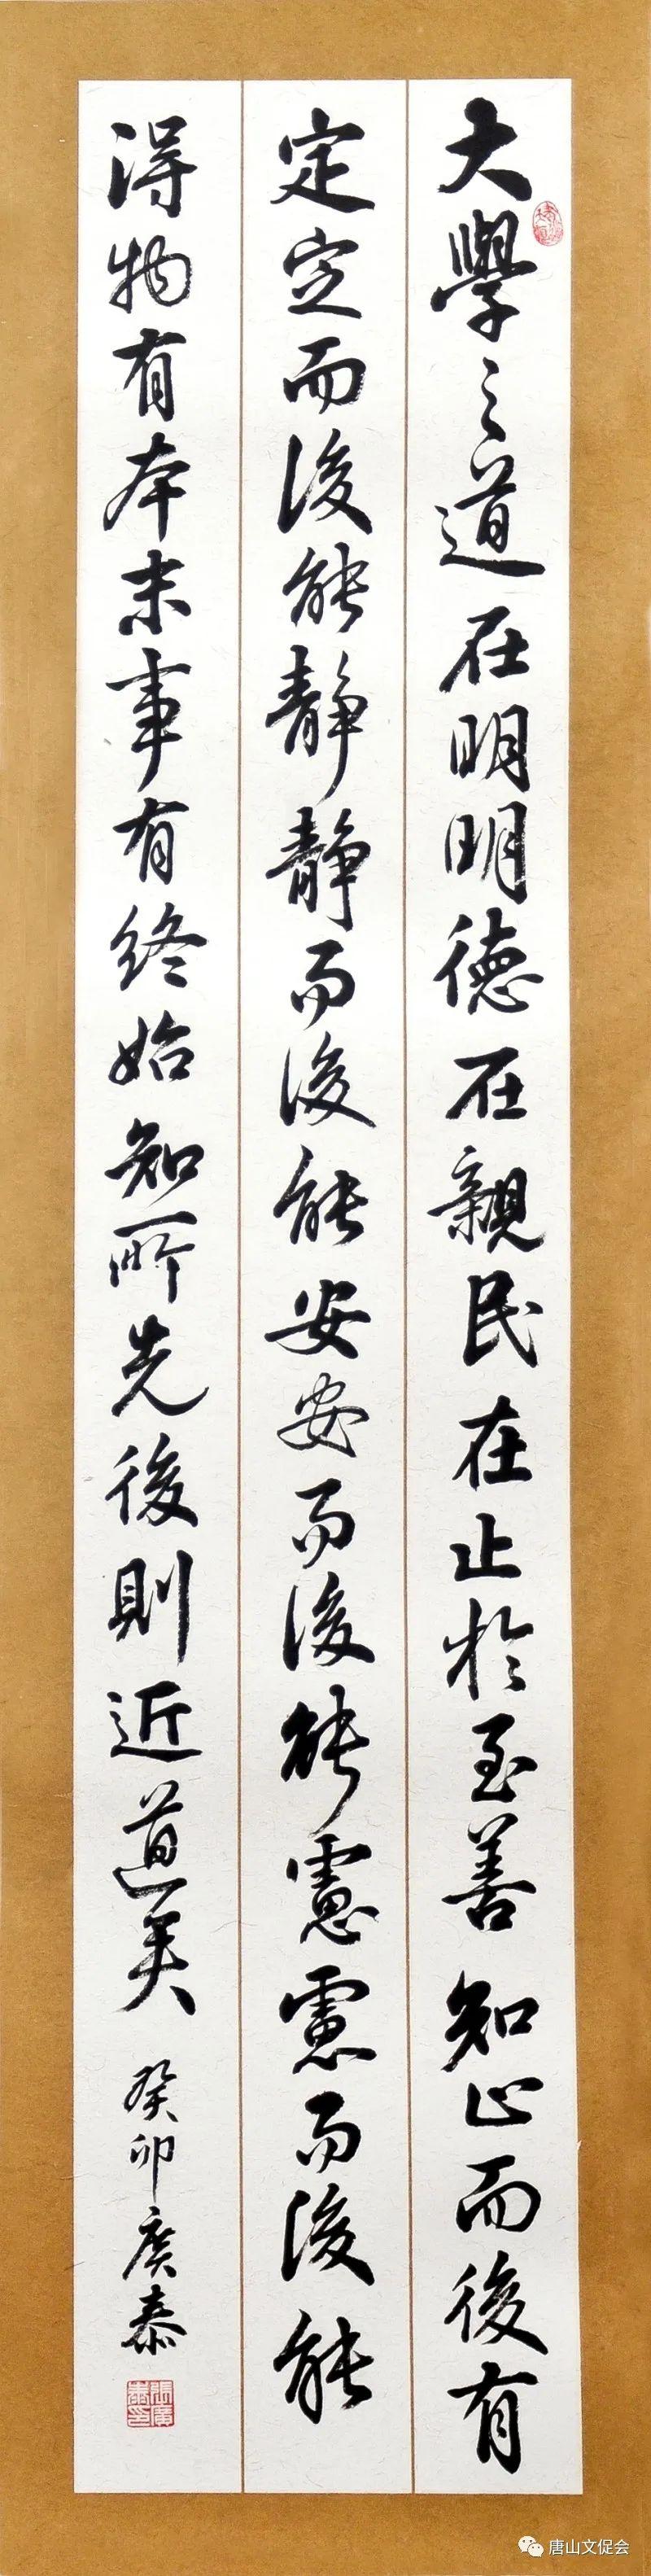 大學之道在明明德在親民在止於至善知止而後有
定定而後能靜靜而後能安安而後能慮慮而後能
得物有本末事有終始知所先後則近道矣
癸卯廣泰
張廣泰印
唐山文促会